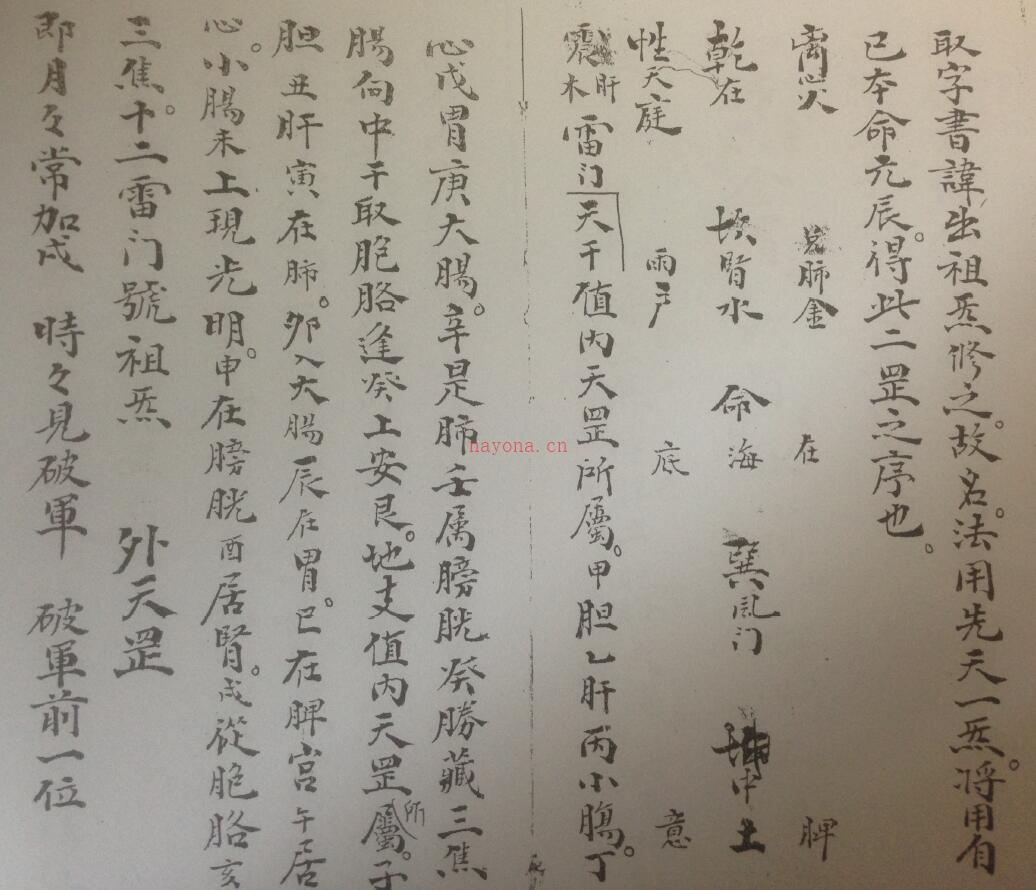 取字書諱出祖炁修之。故名。法用先天一炁。将用自
已本命元辰。得此二罡之序也。
离心火 兑肺金 在 脾
乾在 坎腎水 命海 巽風门 坤中土
性天庭 雨户 底 意
震木肝雷门 天干值内天罡所屬。甲胆乙肝丙小腸。丁
心戊胃庚大腸。辛是肺壬属膀胱癸勝藏三焦
腸向中干取胞胳逢癸上安艮。地支值内天罡所屬。子
胆丑肝寅在肺。卯入大腸辰在胃。巳在脾宫午居
心。小腸未上現光明。申在膀胱酉居腎。戌從胞胳亥
三焦。十二雷门號祖炁 外天罡
即月々常加戌 時々見破軍 破軍前一位
nayona.cn